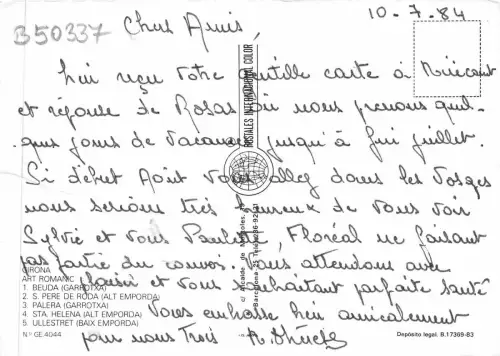 10.7.84
B50337
Chers Amis,
lui reçu votre gentille carte à
et réponse de Rosas où nous prenons quel-
ques jours de vacances jusqu'à fin juillet.
Si début Août vous allez dans les Vosges
nous serions très heureux de vous voir
Sylvie et vous Paulette, Floréal ne faisant
pas partie du convoi. Nous attendons avec
plaisir et vous souhaitant parfaite santé
Vous embrasse bien amicalement
pour nous trois
POSTALES INTERNATIONAL COLOR
GIRONA
ART ROMANIC
1. BEUDA (GARROTXA)
2. S. PERE DE RODA (ALT EMPORDA)
3. PALERA (GARROTXA)
4. STA. HELENA (ALT EMPORDA)
5. ULLESTRET (BAIX EMPORDA)
N.º GE 4044
Depósito legal. B. 17369-83